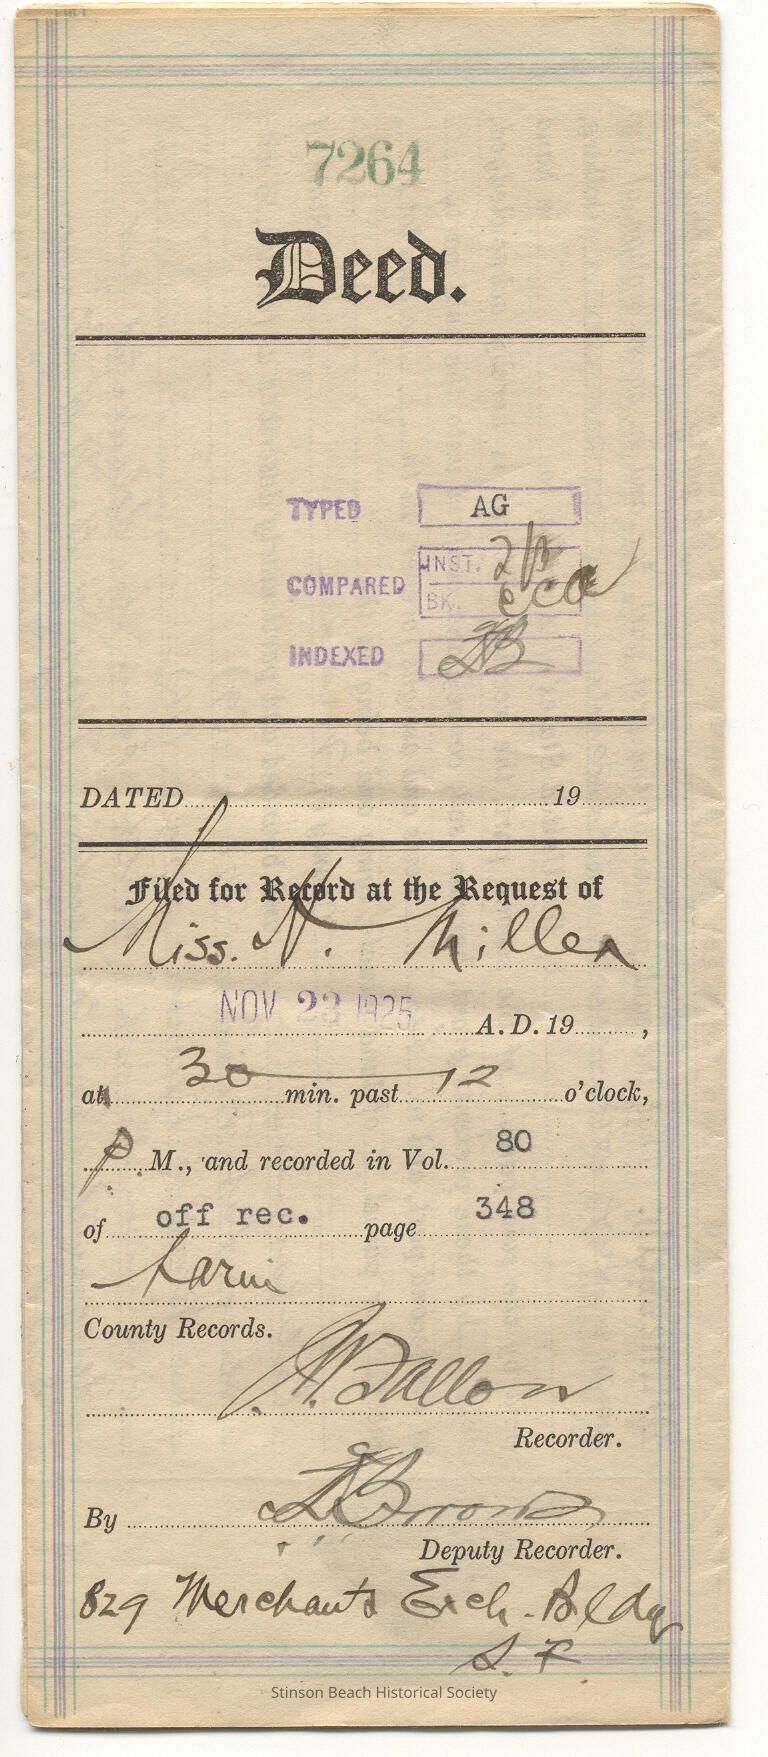 7264
Deed.
TYPED AG
INST.
COMPARED
BK.
INDEXED
DATED 19
Filed for Record at the Request of
Miss. N. Miller
NOV 23 1925 A.D. 19 ,
at 30 min. past 12 o'clock,
P. M., and recorded in Vol. 80
of off rec. page 348
Marin
County Records.
Fallon
Recorder.
By
Deputy Recorder.
829 Merchants Exch. Bldg
S. F.
Stinson Beach Historical Society